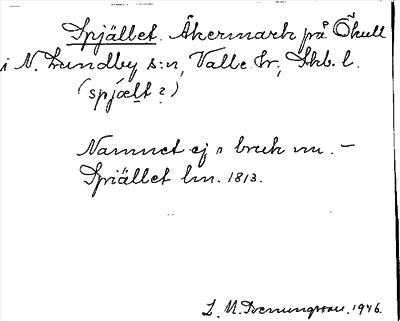 Spjället. Åkermark på Ökull
i N. Lundby s:n, Valle hr, Skb. l.
(spjælt ?)
Namnet ej i bruk nu. –
Spiället lm. 1813.
1946.